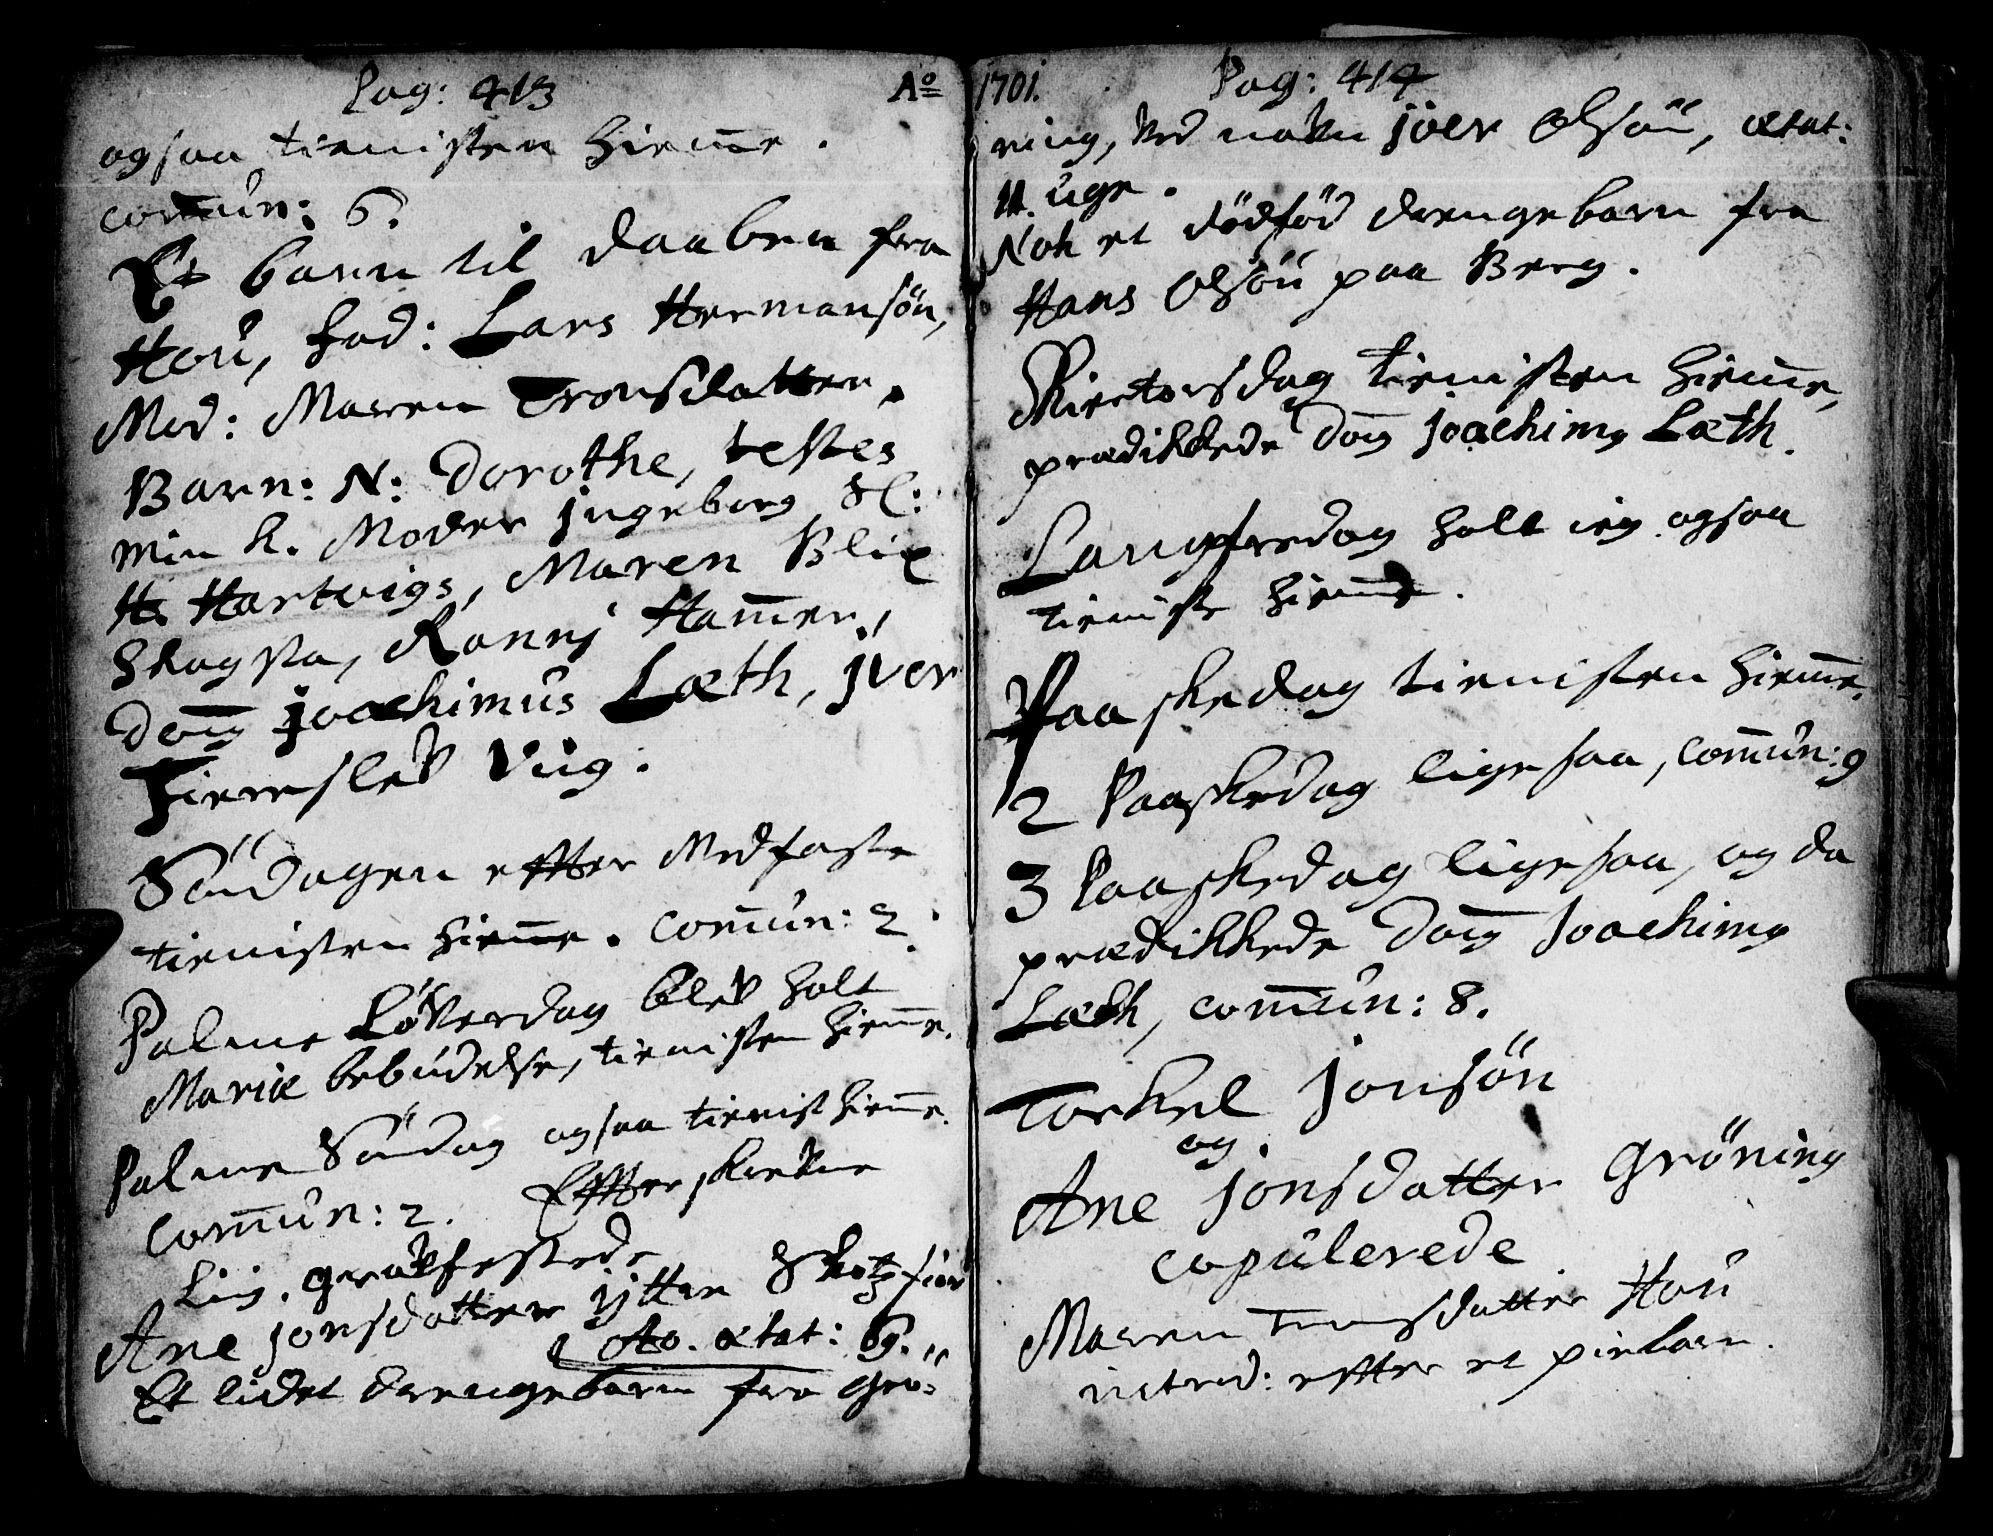 Pag: 413 Aº
ogsaa tienisten hieme.
comun: 6.
Et barn til daaben fra
Hou, fad: Lars Hermansön,
Mod: Maren Tronsdatter.
Barn: N: Dorothe, testes
min k. Moder Jngeborg Sl:
Hr Hartvigs, Maren Blix
Skogsta, Rannj Hamer,
Dom Joachimus Læth, jver
Fierrslev Viig:
Söndagen effter Midfaste
tienisten hieme. Comun: 2.
Palme Löverdag blev holt
Mariæ bebudelse, tienisten hieme.
Palme Söndag ogsaa tienist hieme.
Comun: 2. Effterskrevne
Liig. gravfestede
Ane Jonsdatter jttre
Ao. ætat: 69.
Et lidet drengebarn fra Grö-
1701. Pag: 414
ning, ved navn joer Olsön, ætat:
11. uge.
Nok et dödföd drengebarn fra
Hans Olsön paa Berg.
Skiertorsdag tienisten hieme,
prædikkede Dom Joachimg Læth.
Langfredag holt ieg ogsaa
tieniste hieme.
Paaskedag tienisten hieme.
2 Paaskedag ligesaa, comun: 9
3 Paaskedag ligesaa, og da
prædikkede Dom Joachimg
Læth, comun: 8.
Torkel Jonsön
og
Ane Jonsdatter Gröning
copulerede
Maren Tronsdatter Hou
introd: effter et piebarn.